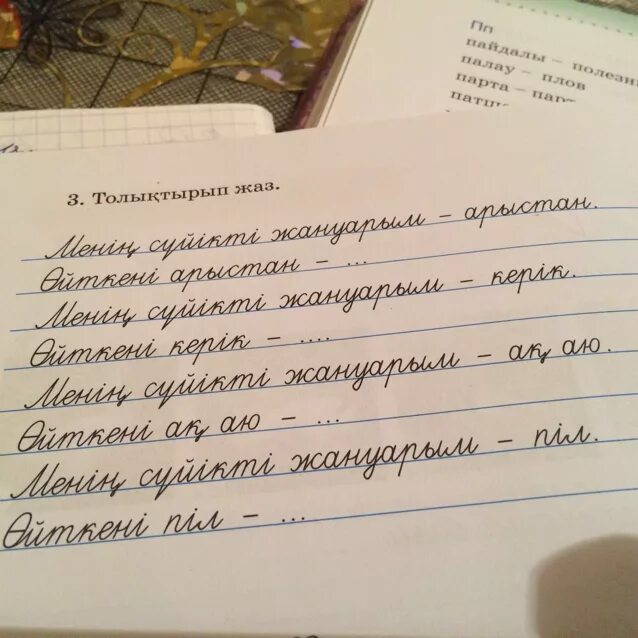 Пп
пайдалы – полезн
палау – плов
парта – парт
3. Толықтырып жаз.
Менің сүйікті жануарым – арыстан.
Өйткені арыстан – ...
Менің сүйікті жануарым – керік.
Өйткені керік – ....
Менің сүйікті жануарым – ақ аю.
Өйткені ақ аю – ...
Менің сүйікті жануарым – піл.
Өйткені піл – ...